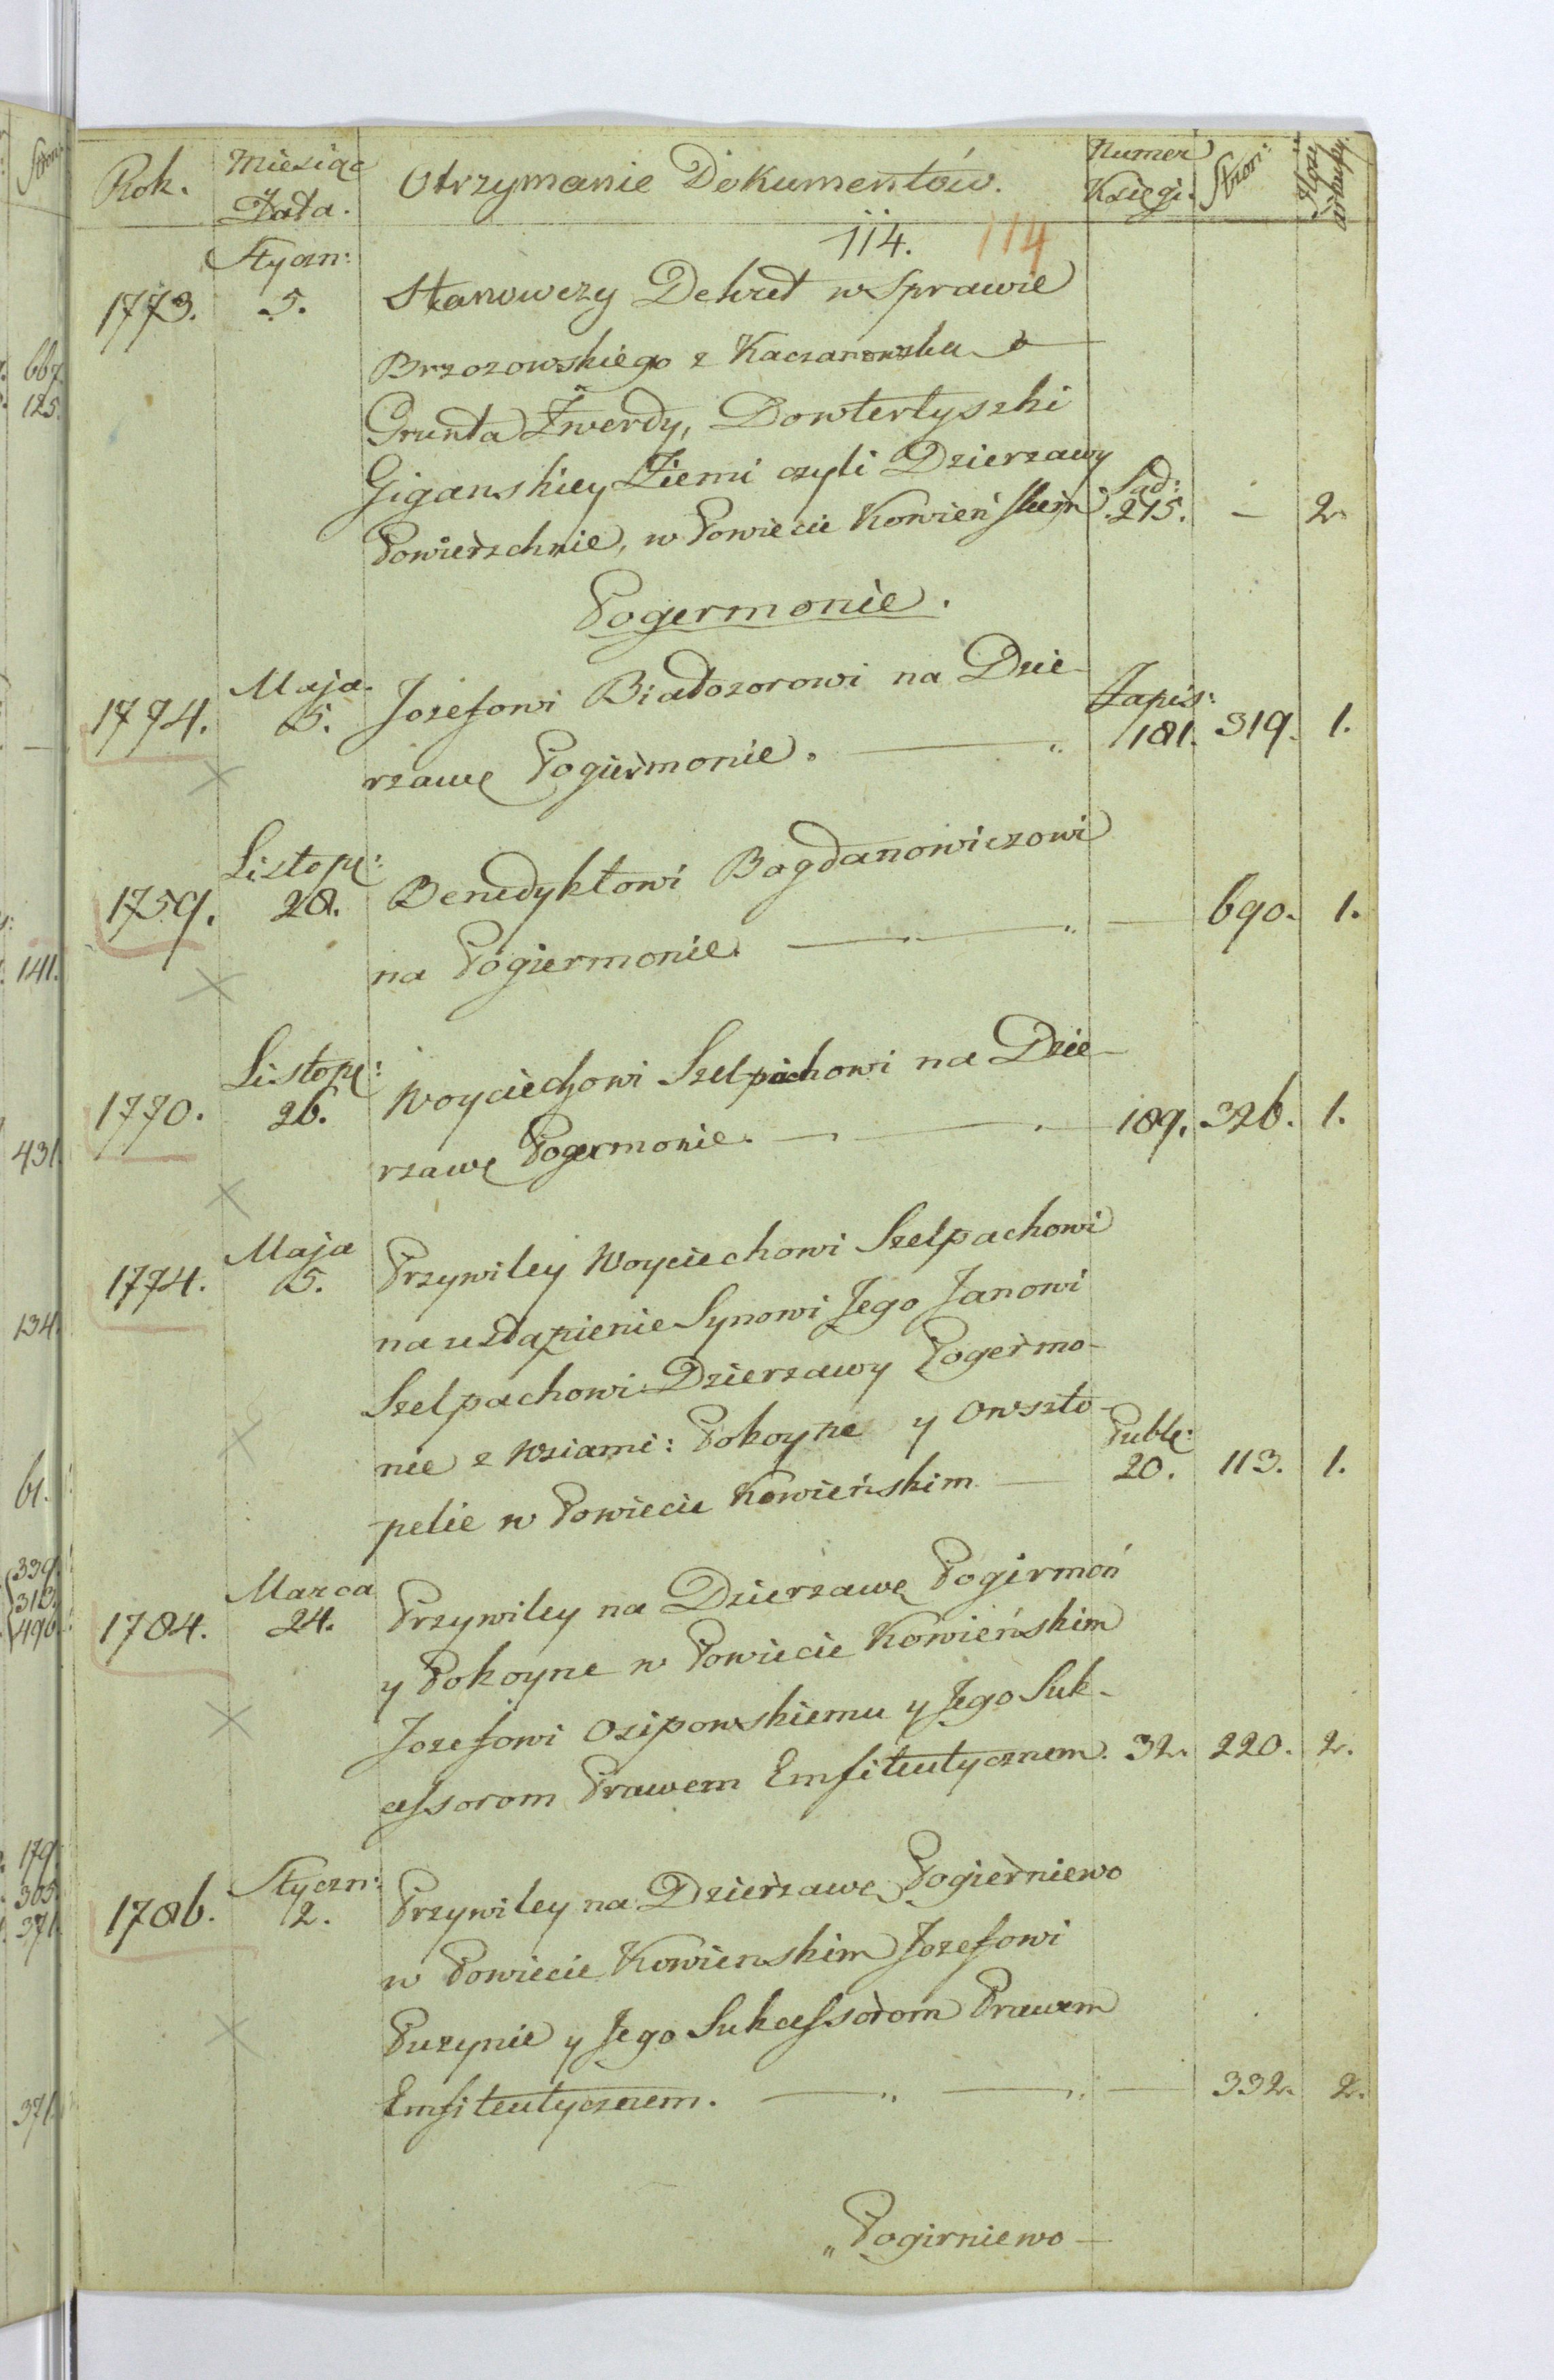 Rok. Miesiąc Data. Otrzymanie Dokumentów. Numer Księgi. Stron:
114. 114
1773. Styczn: 5. Stanowczy Dekret w Sprawie
Brzozowskiego z Kaczanowska o
Grunta Żwerdy, Dowtertyszki
Giganskiey Ziemi czyli Dzierzawy
Powierzchnie, w Powiecie Kowieńskim Sąd: 275. — 2.
Pogermonie.
1794. Maja 5. Jozefowi Białozorowi na Dzie-
rzawę Pogiermonie. Zapis: 181. 319. 1.
1759. Listop: 28. Benedyktowi Bogdanowiczowi
na Pogiermonie. — 690. 1.
1770. Listop: 26. Woyciechowi Szelpachowi na Dzie-
rzawę Pogermonie. 189. 326. 1.
1774. Maja 5. Przywiley Woyciechowi Szelpachowi
na ustąpienie Synowi Jego Janowi
Szelpachowi Dzierzawy Pogermo-
nie z Wsiami: Pokoyne y Owszto-
pelie w Powiecie Kowieńskim — Publ: 20. 113. 1.
1784. Marca 24. Przywiley na Dzierzawę Pogirmoń
y Pokoyne w Powiecie Kowieńskim
Jozefowi Osipowskiemu y Jego Suk-
cessorom Prawem Emfiteutycznem. 32. 220. 2.
1786. Styczn: 2. Przywiley na Dzierżawę Pogierniewo
w Powiecie Kowienskim Jozefowi
Puzynie y Jego Sukcessorom Prawem
Emfiteutycznem. — 332. 2.
„Pogirniewo —
667.
125.
141.
431.
134.
61.
339.
313.
490.
179.
305.
371.
371.